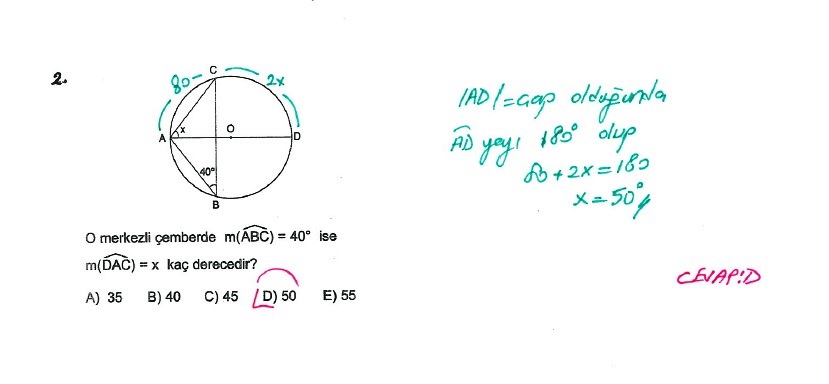 2.
C
80
2x
A
x
O
D
40°
B
O merkezli çemberde m(ABC) = 40° ise
m(DAC) = x kaç derecedir?
A) 35 B) 40 C) 45 D) 50 E) 55
|AD|=Çap olduğunda
AD yayı 180° olup
80+2x=180
x=50°
CEVAP:D